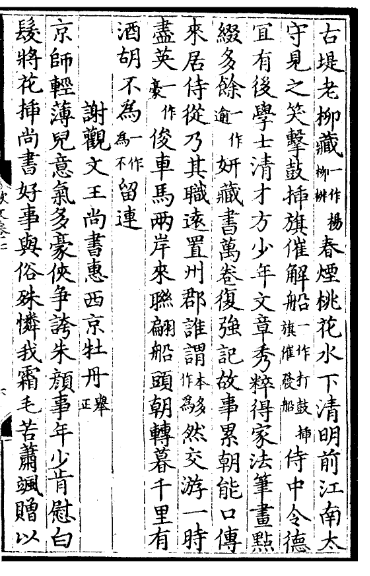 古堤老柳藏一作楊柳緋春煙桃花水下清明前江南太
守見之笑擊鼓揷旗催解船一作打鼓揷旗催發船侍中令德
宜有後學士清才方少年文章秀粹得家法筆畫點
綴多餘一作逾妍藏書萬卷復強記故事累朝能口傳
來居侍從乃其職遠置州郡誰謂本多作為然交游一時
盡英一作豪俊車馬兩岸來聯翩船頭朝轉暮千里有
酒胡不為一作為不留連
謝觀文王尚書惠西京牡丹舉正
京師輕薄兒意氣多豪俠爭誇朱顏事年少肯慰白
髮將花揷尚書好事與俗殊憐我霜毛苦蕭颯贈以